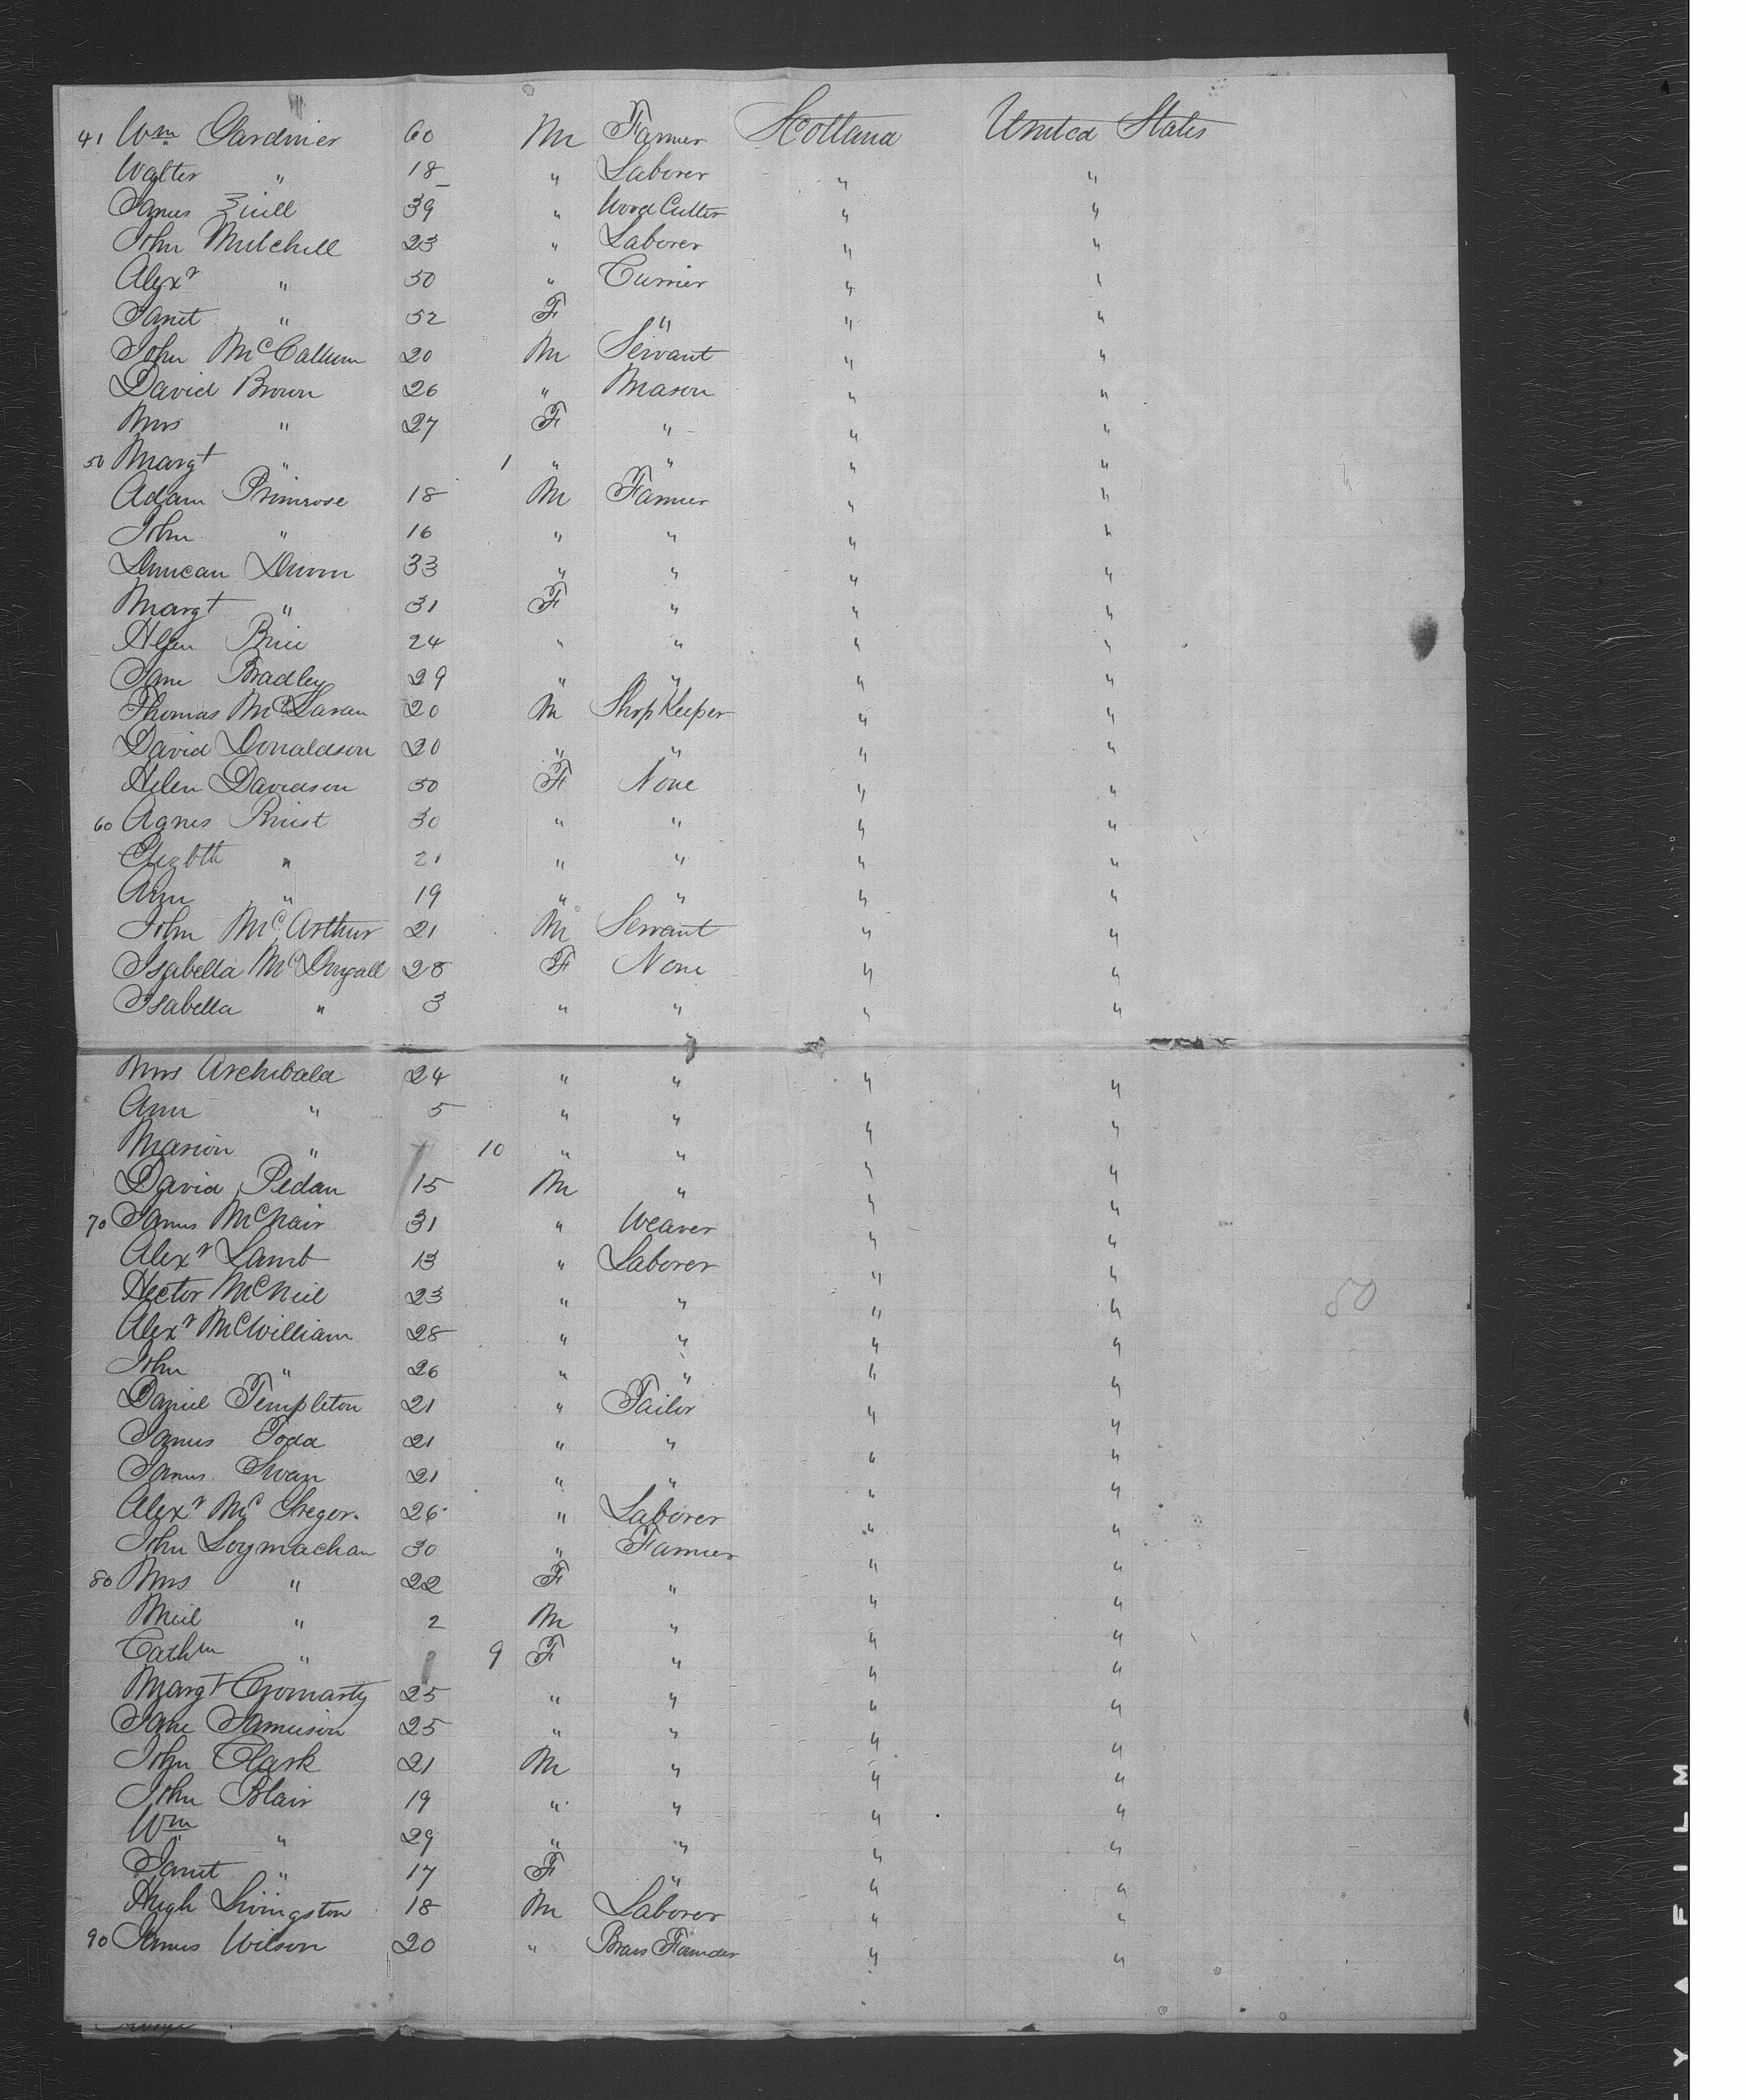 41 Wm Gardiner 60 M Farmer Scotland United States
Walter " 18 " Laborer " "
James Zuill 39 " Wood Cutter " "
John Mitchell 23 " Laborer " "
Alexr " 50 " Currier " "
Janet " 52 F " " "
John McCallum 20 M Servant " "
David Brown 26 " Mason " "
Mrs " 27 F " " "
50 Margt " 1 " " " "
Adam Primrose 18 M Farmer " "
John " 16 " " " "
Duncan Dunn 33 " " " "
Margt " 31 F " " "
Helen 24 " " " "
Jane Bradley 29 " " " "
Thomas McLaran 20 M Shop Keeper " "
David Donaldson 20 " " " "
Helen Davidson 50 F None " "
60 Agnes 30 " " " "
Elizbth " 21 " " " "
Ann " 19 " " " "
John McArthur 21 M Servant " "
Isabella McDougall 28 F None " "
Isabella " 3 " " " "
Mrs Archibald 24 " " " "
Ann " 5 " " " "
Marion " 10 " " " "
David Pedan 15 M " " "
70 James McNair 31 " Weaver " "
Alexr Lamb 13 " Laborer " "
Hector McNeil 23 " " " "
Alexr McWilliam 28 " " " "
John " 26 " " " "
Daniel Templeton 21 " Tailor " "
James Todd 21 " " " "
James Swan 21 " " " "
Alexr McGregor 26 " Laborer " "
John Loymachan 30 " Farmer " "
80 Mrs " 22 F " " "
Neil " 2 M " " "
Cathn " 9 F " " "
Margt 25 " " " "
Jane Jamieson 25 " " " "
John Clark 21 M " " "
John Blair 19 " " " "
Wm " 29 " " " "
Janet " 17 F " " "
Hugh Livingston 18 M Laborer " "
90 James Wilson 20 " Brass Founder " "
50